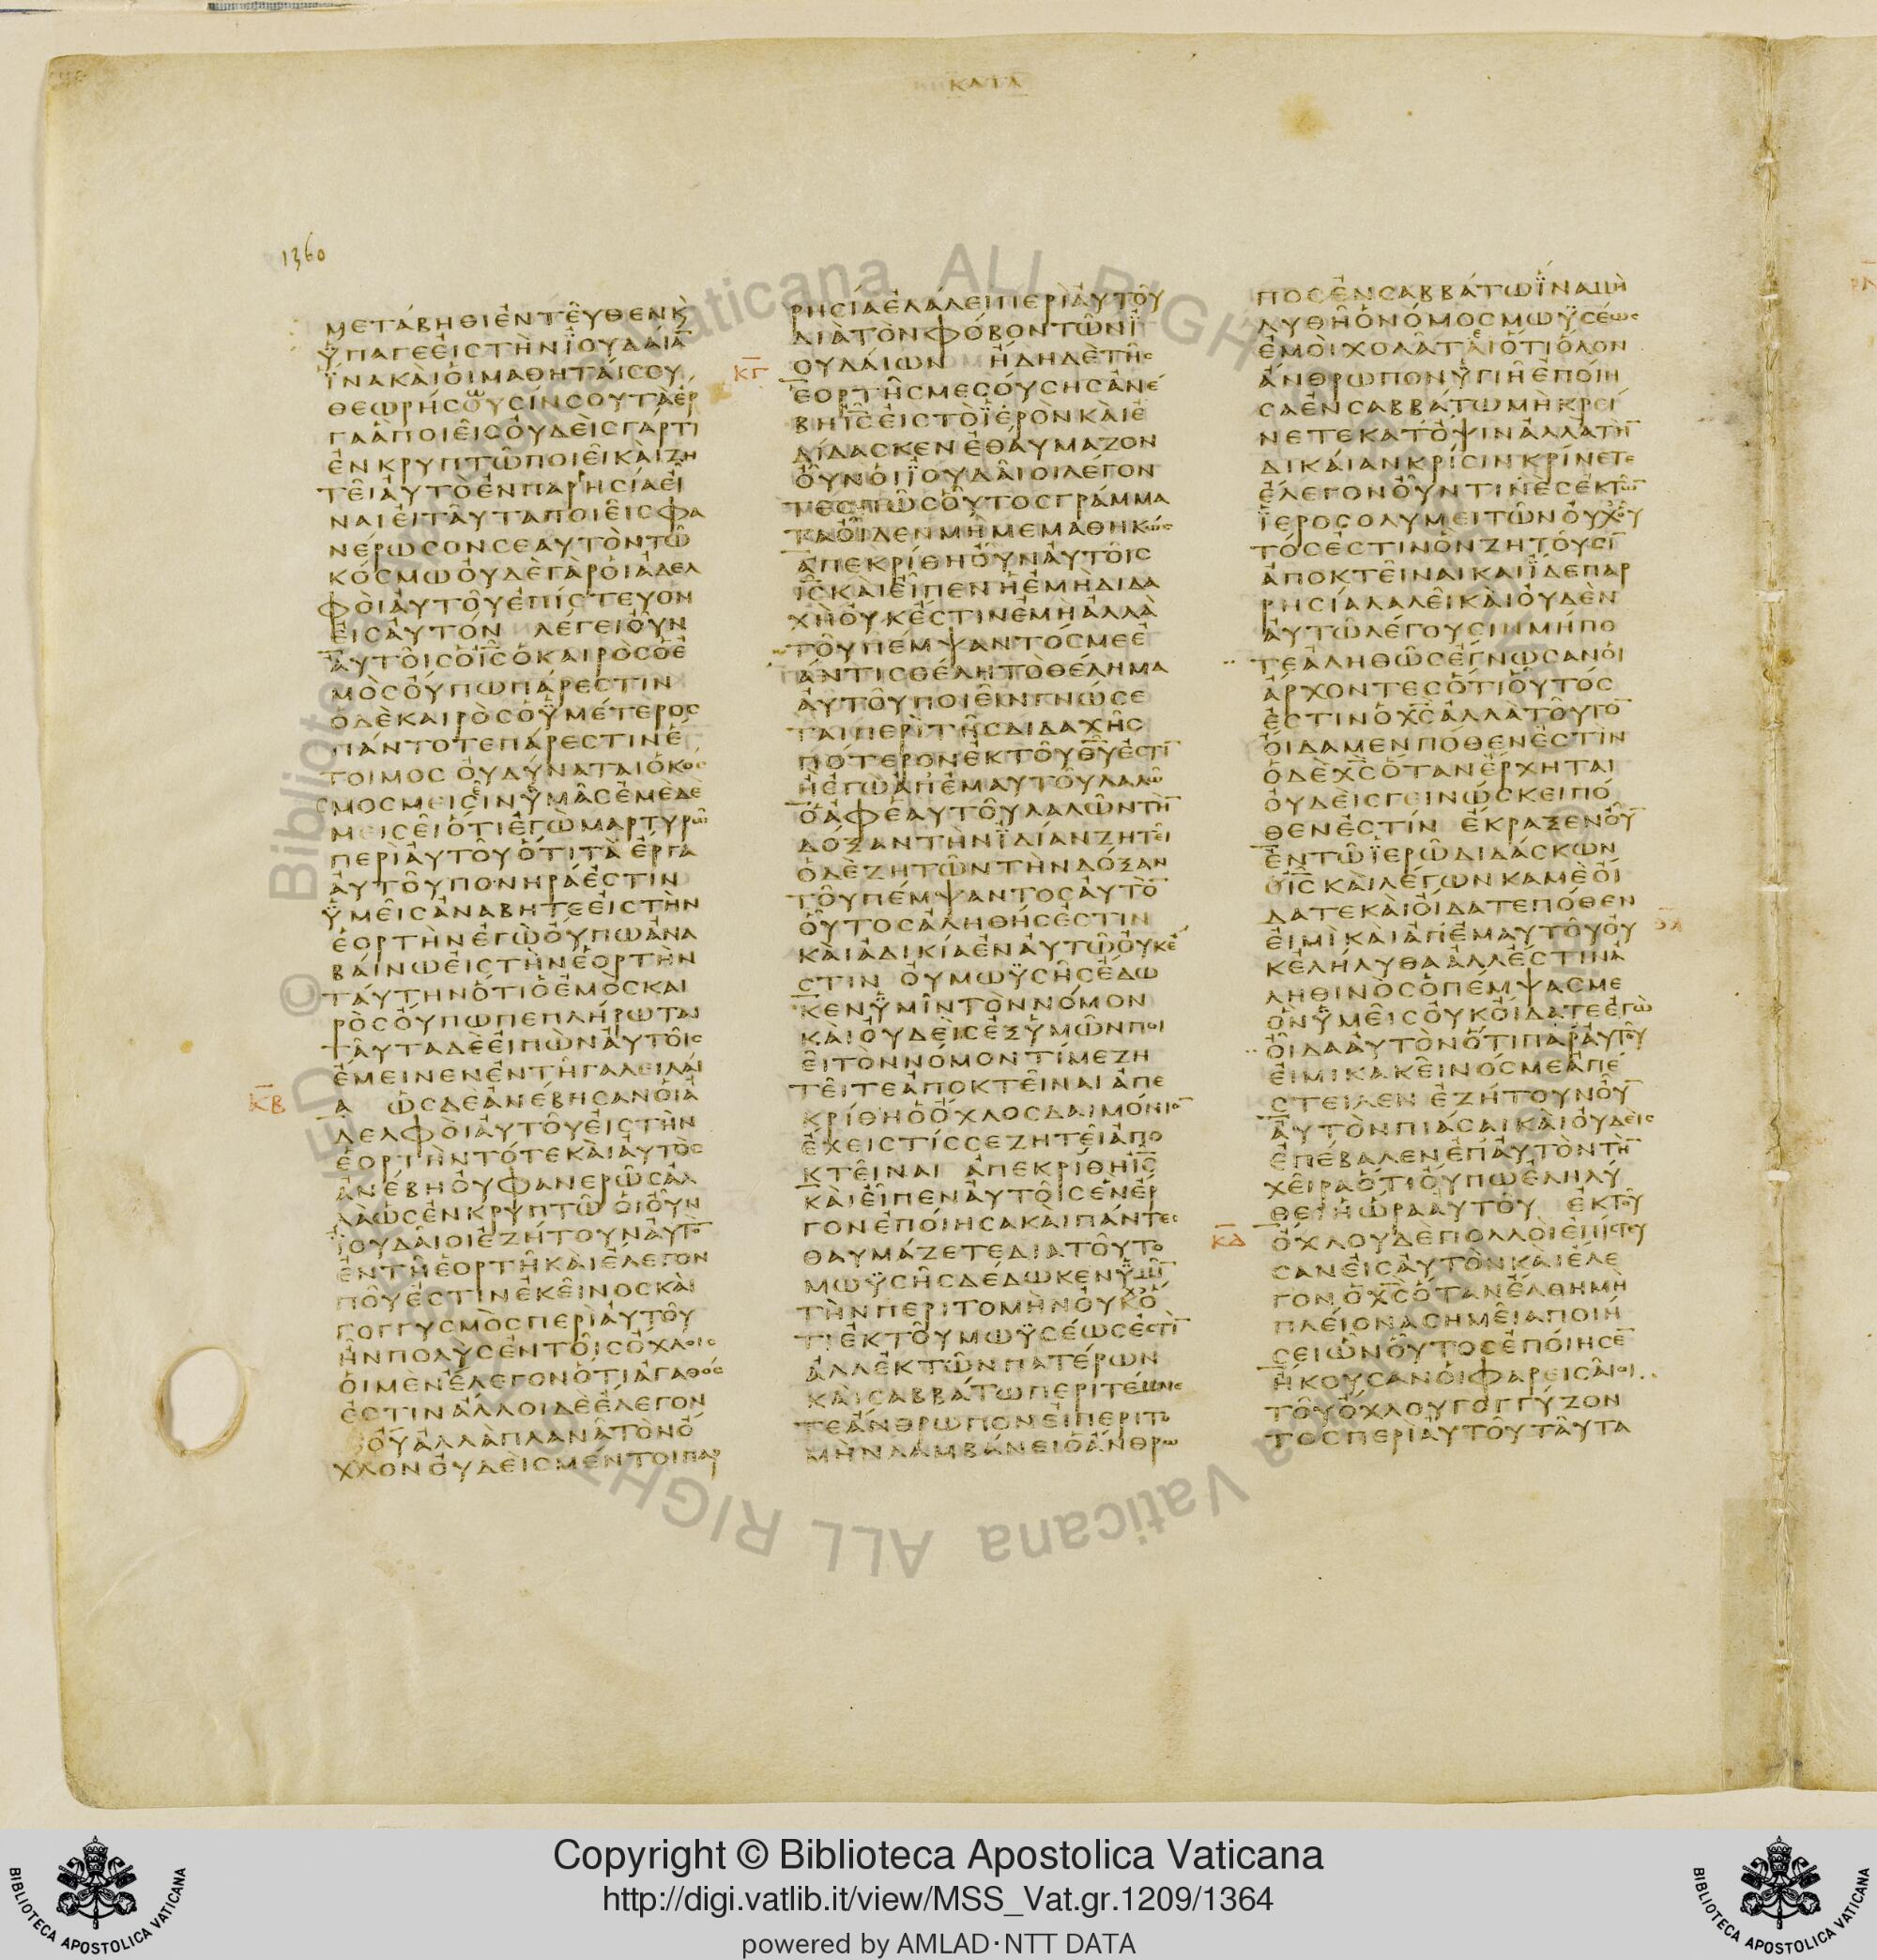 ΚΑΤΑ
1360
ΜΕΤΑΒΗΘΙΕΝΤΕΥΘΕΝΚ
ΫΠΑΓΕΕΙϹΤΗΝΪΟΥΔΑΙΑ̅
ΪΝΑΚΑΙΟΙΜΑΘΗΤΑΙϹΟΥ
ΘΕΩΡΗϹΟΥϹΙΝϹΟΥΤΑΕΡ
ΓΑΑΠΟΙΕΙϹΟΥΔΕΙϹΓΑΡΤΙ
ΕΝΚΡΥΠΤΩΠΟΙΕΙΚΑΙΖΗ
ΤΕΙΑΥΤΟΕΝΠΑΡΗϹΙΑΕΙ
ΝΑΙΕΙΤΑΥΤΑΠΟΙΕΙϹΦΑ
ΝΕΡΩϹΟΝϹΕΑΥΤΟΝΤΩ
ΚΟϹΜΩΟΥΔΕΓΑΡΟΙΑΔΕΛ
ΦΟΙΑΥΤΟΥΕΠΙϹΤΕΥΟΝ
ΕΙϹΑΥΤΟΝ ΛΕΓΕΙΟΥΝ
ΑΥΤΟΙϹΟΙ̅Ϲ̅ΟΚΑΙΡΟϹΟΕ
ΜΟϹΟΥΠΩΠΑΡΕϹΤΙΝ
ΟΔΕΚΑΙΡΟϹΟΫΜΕΤΕΡΟϹ
ΠΑΝΤΟΤΕΠΑΡΕϹΤΙΝΕ
ΤΟΙΜΟϹ ΟΥΔΥΝΑΤΑΙΟΚΟϹ
ΜΟϹΜΕΙϹΙΝΫΜΑϹΕΜΕΔΕ
ΜΕΙϹΕΙΟΤΙΕΓΩΜΑΡΤΥΡΩ
ΠΕΡΙΑΥΤΟΥΟΤΙΤΑΕΡΓΑ
ΑΥΤΟΥΠΟΝΗΡΑΕϹΤΙΝ
ΫΜΕΙϹΑΝΑΒΗΤΕΕΙϹΤΗΝ
ΕΟΡΤΗΝΕΓΩΟΥΠΩΑΝΑ
ΒΑΙΝΩΕΙϹΤΗΝΕΟΡΤΗΝ
ΤΑΥΤΗΝΟΤΙΟΕΜΟϹΚΑΙ
ΡΟϹΟΥΠΩΠΕΠΛΗΡΩΤΑΙ
ΤΑΥΤΑΔΕΕΙΠΩΝΑΥΤΟΙϹ
ΕΜΕΙΝΕΝΕΝΤΗΓΑΛΕΙΛΑΙ
Κ̅Β̅
Α ΩϹΔΕΑΝΕΒΗϹΑΝΟΙΑ
ΔΕΛΦΟΙΑΥΤΟΥΕΙϹΤΗΝ
ΕΟΡΤΗΝΤΟΤΕΚΑΙΑΥΤΟϹ
ΑΝΕΒΗΟΥΦΑΝΕΡΩϹΑΛ
ΛΑΩϹΕΝΚΡΥΠΤΩ ΟΙΟΥΝ
ΪΟΥΔΑΙΟΙΕΖΗΤΟΥΝΑΥΤΟ̅
ΕΝΤΗΕΟΡΤΗΚΑΙΕΛΕΓΟΝ
ΠΟΥΕϹΤΙΝΕΚΕΙΝΟϹΚΑΙ
ΓΟΓΓΥϹΜΟϹΠΕΡΙΑΥΤΟΥ
ΗΝΠΟΛΥϹΕΝΤΟΙϹΟΧΛΟΙϹ
ΟΙΜΕΝΕΛΕΓΟΝΟΤΙΑΓΑΘΟϹ
ΕϹΤΙΝΑΛΛΟΙΔΕΕΛΕΓΟΝ
ΟΥΑΛΛΑΠΛΑΝΑΤΟΝΟ
ΧΛΟΝΟΥΔΕΙϹΜΕΝΤΟΙΠΑΡ
ΡΗϹΙΑΕΛΑΛΕΙΠΕΡΙΑΥΤΟΥ
ΔΙΑΤΟΝΦΟΒΟΝΤΩΝΪ
Κ̅Γ̅
ΟΥΔΑΙΩΝ ΗΔΗΔΕΤΗϹ
ΕΟΡΤΗϹΜΕϹΟΥϹΗϹΑΝΕ
ΒΗΙ̅Ϲ̅ΕΙϹΤΟΪΕΡΟΝΚΑΙΕ
ΔΙΔΑϹΚΕΝΕΘΑΥΜΑΖΟΝ
ΟΥΝΟΙΪΟΥΔΑΙΟΙΛΕΓΟΝ
ΤΕϹΠΩϹΟΥΤΟϹΓΡΑΜΜΑ
ΤΑΟΙΔΕΝΜΗΜΕΜΑΘΗΚΩϹ
ΑΠΕΚΡΙΘΗΟΥΝΑΥΤΟΙϹ
Ι̅Ϲ̅ΚΑΙΕΙΠΕΝΗΕΜΗΔΙΔΑ
ΧΗΟΥΚΕϹΤΙΝΕΜΗΑΛΛΑ
ΤΟΥΠΕΜΨΑΝΤΟϹΜΕΕ
ΑΝΤΙϹΘΕΛΗΤΟΘΕΛΗΜΑ
ΑΥΤΟΥΠΟΙΕΙΝΓΝΩϹΕ
ΤΑΙΠΕΡΙΤΗϹΔΙΔΑΧΗϹ
ΠΟΤΕΡΟΝΕΚΤΟΥΘ̅Υ̅ΕϹΤΙ̅
ΗΕΓΩΑΠΕΜΑΥΤΟΥΛΑΛΩ
ΟΑΦΕΑΥΤΟΥΛΑΛΩΝΤΗ̅
ΔΟΞΑΝΤΗΝΪΔΙΑΝΖΗΤΕΙ
ΟΔΕΖΗΤΩΝΤΗΝΔΟΞΑΝ
ΤΟΥΠΕΜΨΑΝΤΟϹΑΥΤΟ̅
ΟΥΤΟϹΑΛΗΘΗϹΕϹΤΙΝ
ΚΑΙΑΔΙΚΙΑΕΝΑΥΤΩΟΥΚΕ
ϹΤΙΝ ΟΥΜΩΫϹΗϹΕΔΩ
ΚΕΝΫΜΙΝΤΟΝΝΟΜΟΝ
ΚΑΙΟΥΔΕΙϹΕΞΫΜΩΝΠΟΙ
ΕΙΤΟΝΝΟΜΟΝΤΙΜΕΖΗ
ΤΕΙΤΕΑΠΟΚΤΕΙΝΑΙΑΠΕ
ΚΡΙΘΗΟΟΧΛΟϹΔΑΙΜΟΝΙΟ̅
ΕΧΕΙϹΤΙϹϹΕΖΗΤΕΙΑΠΟ
ΚΤΕΙΝΑΙ ΑΠΕΚΡΙΘΗΙ̅Ϲ̅
ΚΑΙΕΙΠΕΝΑΥΤΟΙϹΕΝΕΡ
ΓΟΝΕΠΟΙΗϹΑΚΑΙΠΑΝΤΕϹ
ΘΑΥΜΑΖΕΤΕΔΙΑΤΟΥΤΟ
ΜΩΫϹΗϹΔΕΔΩΚΕΝΫΜΙ̅
ΤΗΝΠΕΡΙΤΟΜΗΝΟΥΧΟ
ΤΙΕΚΤΟΥΜΩΫϹΕΩϹΕϹΤΙ̅
ΑΛΛΕΚΤΩΝΠΑΤΕΡΩΝ
ΚΑΙϹΑΒΒΑΤΩΠΕΡΙΤΕΜΝΕ
ΤΕΑΝΘΡΩΠΟΝΕΙΠΕΡΙΤΟ
ΜΗΝΛΑΜΒΑΝΕΙΟΑΝΘΡΩ
ΠΟϹΕΝϹΑΒΒΑΤΩΪΝΑΜΗ
ΛΥΘΗΟΝΟΜΟϹΜΩΫϹΕΩϹ
ΕΜΟΙΧΟΛΑΤΑΙΟΤΙΟΛΟΝ
ΑΝΘΡΩΠΟΝΫΓΙΗΕΠΟΙΗ
ϹΑΕΝϹΑΒΒΑΤΩΜΗΚΡΕΙ
ΝΕΤΕΚΑΤΟΨΙΝΑΛΛΑΤΗ̅
ΔΙΚΑΙΑΝΚΡΙϹΙΝΚΡΙΝΕΤΕ
ΕΛΕΓΟΝΟΥΝΤΙΝΕϹΕΚΤΩ̅
ΪΕΡΟϹΟΛΥΜΕΙΤΩΝΟΥΧΟΥ
ΤΟϹΕϹΤΙΝΟΝΖΗΤΟΥϹΙ̅
ΑΠΟΚΤΕΙΝΑΙΚΑΙΪΔΕΠΑΡ
ΡΗϹΙΑΛΑΛΕΙΚΑΙΟΥΔΕΝ
ΑΥΤΩΛΕΓΟΥϹΙΝΜΗΠΟ
ΤΕΑΛΗΘΩϹΕΓΝΩϹΑΝΟΙ
ΑΡΧΟΝΤΕϹΟΤΙΟΥΤΟϹ
ΕϹΤΙΝΟΧ̅Ϲ̅ΑΛΛΑΤΟΥΤΟ̅
ΟΙΔΑΜΕΝΠΟΘΕΝΕϹΤΙΝ
ΟΔΕΧ̅Ϲ̅ΟΤΑΝΕΡΧΗΤΑΙ
ΟΥΔΕΙϹΓΕΙΝΩϹΚΕΙΠΟ
ΘΕΝΕϹΤΙΝ ΕΚΡΑΞΕΝΟΥ̅
ΕΝΤΩΪΕΡΩΔΙΔΑϹΚΩΝ
ΟΙ̅Ϲ̅ΚΑΙΛΕΓΩΝΚΑΜΕΟΙ
ΔΑΤΕΚΑΙΟΙΔΑΤΕΠΟΘΕΝ
ΕΙΜΙΚΑΙΑΠΕΜΑΥΤΟΥΟΥ
ΚΕΛΗΛΥΘΑΑΛΛΕϹΤΙΝΑ
ΛΗΘΙΝΟϹΟΠΕΜΨΑϹΜΕ
ΟΝΫΜΕΙϹΟΥΚΟΙΔΑΤΕΕΓΩ
ΟΙΔΑΑΥΤΟΝΟΤΙΠΑΡΑΥΤΟΥ
ΕΙΜΙΚΑΚΕΙΝΟϹΜΕΑΠΕ
ϹΤΕΙΛΕΝ ΕΖΗΤΟΥΝΟΥ̅
ΑΥΤΟΝΠΙΑϹΑΙΚΑΙΟΥΔΕΙϹ
ΕΠΕΒΑΛΕΝΕΠΑΥΤΟΝΤΗ̅
ΧΕΙΡΑΟΤΙΟΥΠΩΕΛΗΛΥ
ΘΕΙΗΩΡΑΑΥΤΟΥ ΕΚΤΟΥ
Κ̅Δ̅
ΟΧΛΟΥΔΕΠΟΛΛΟΙΕΠΙϹΤΕΥ
ϹΑΝΕΙϹΑΥΤΟΝΚΑΙΕΛΕ
ΓΟΝΟΧ̅Ϲ̅ΟΤΑΝΕΛΘΗΜΗ
ΠΛΕΙΟΝΑϹΗΜΕΙΑΠΟΙΗ
ϹΕΙΩΝΟΥΤΟϹΕΠΟΙΗϹΕ̅
ΗΚΟΥϹΑΝΟΙΦΑΡΕΙϹΑΙΟΙ
ΤΟΥΟΧΛΟΥΓΟΓΓΥΖΟΝ
ΤΟϹΠΕΡΙΑΥΤΟΥΤΑΥΤΑ
© Biblioteca Vaticana ALL RIGHTS
Copyright © Biblioteca Apostolica Vaticana
http://digi.vatlib.it/view/MSS_Vat.gr.1209/1364
powered by AMLAD·NTT DATA
BIBLIOTECA APOSTOLICA VATICANA
BIBLIOTECA APOSTOLICA VATICANA